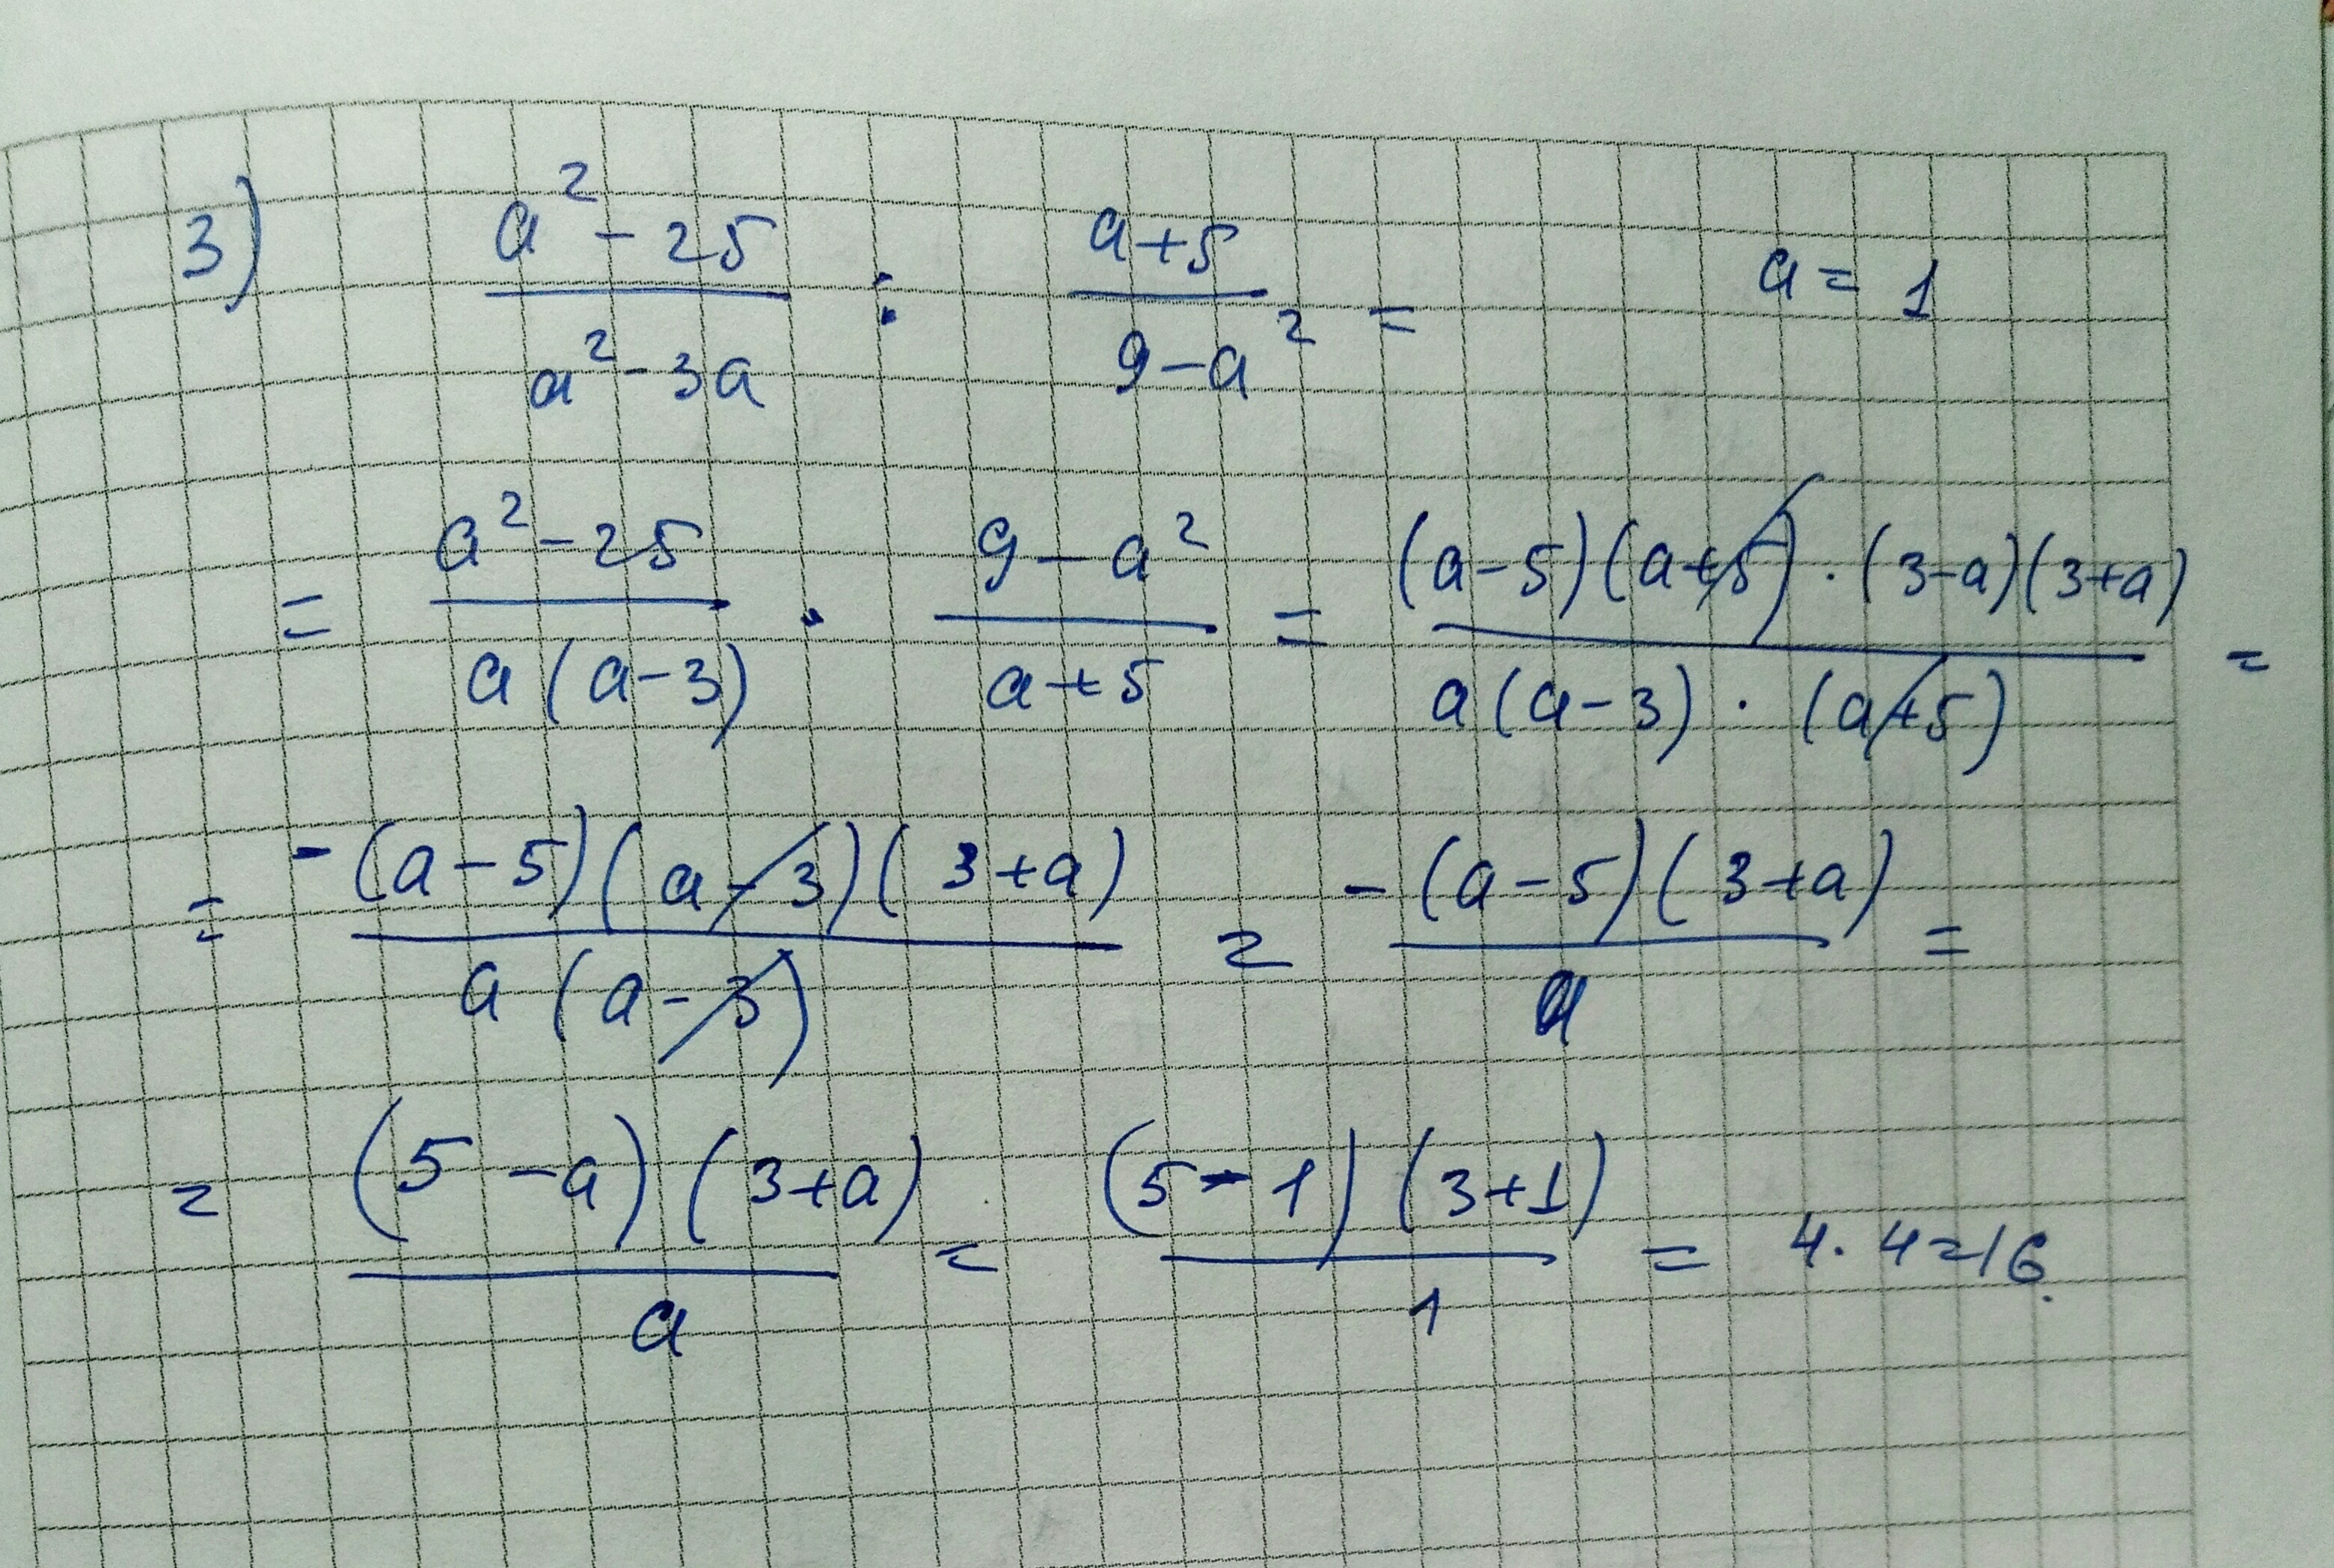 3) (a² - 25)/(a² - 3a) : (a+5)/(9-a²) = a = 1
= (a² - 25)/(a(a-3)) · (9 - a²)/(a+5) = ((a-5)(a+5)·(3-a)(3+a))/(a(a-3)·(a+5)) =
= (-(a-5)(a-3)(3+a))/(a(a-3)) = (-(a-5)(3+a))/a =
= ((5-a)(3+a))/a = ((5-1)(3+1))/1 = 4·4=16.